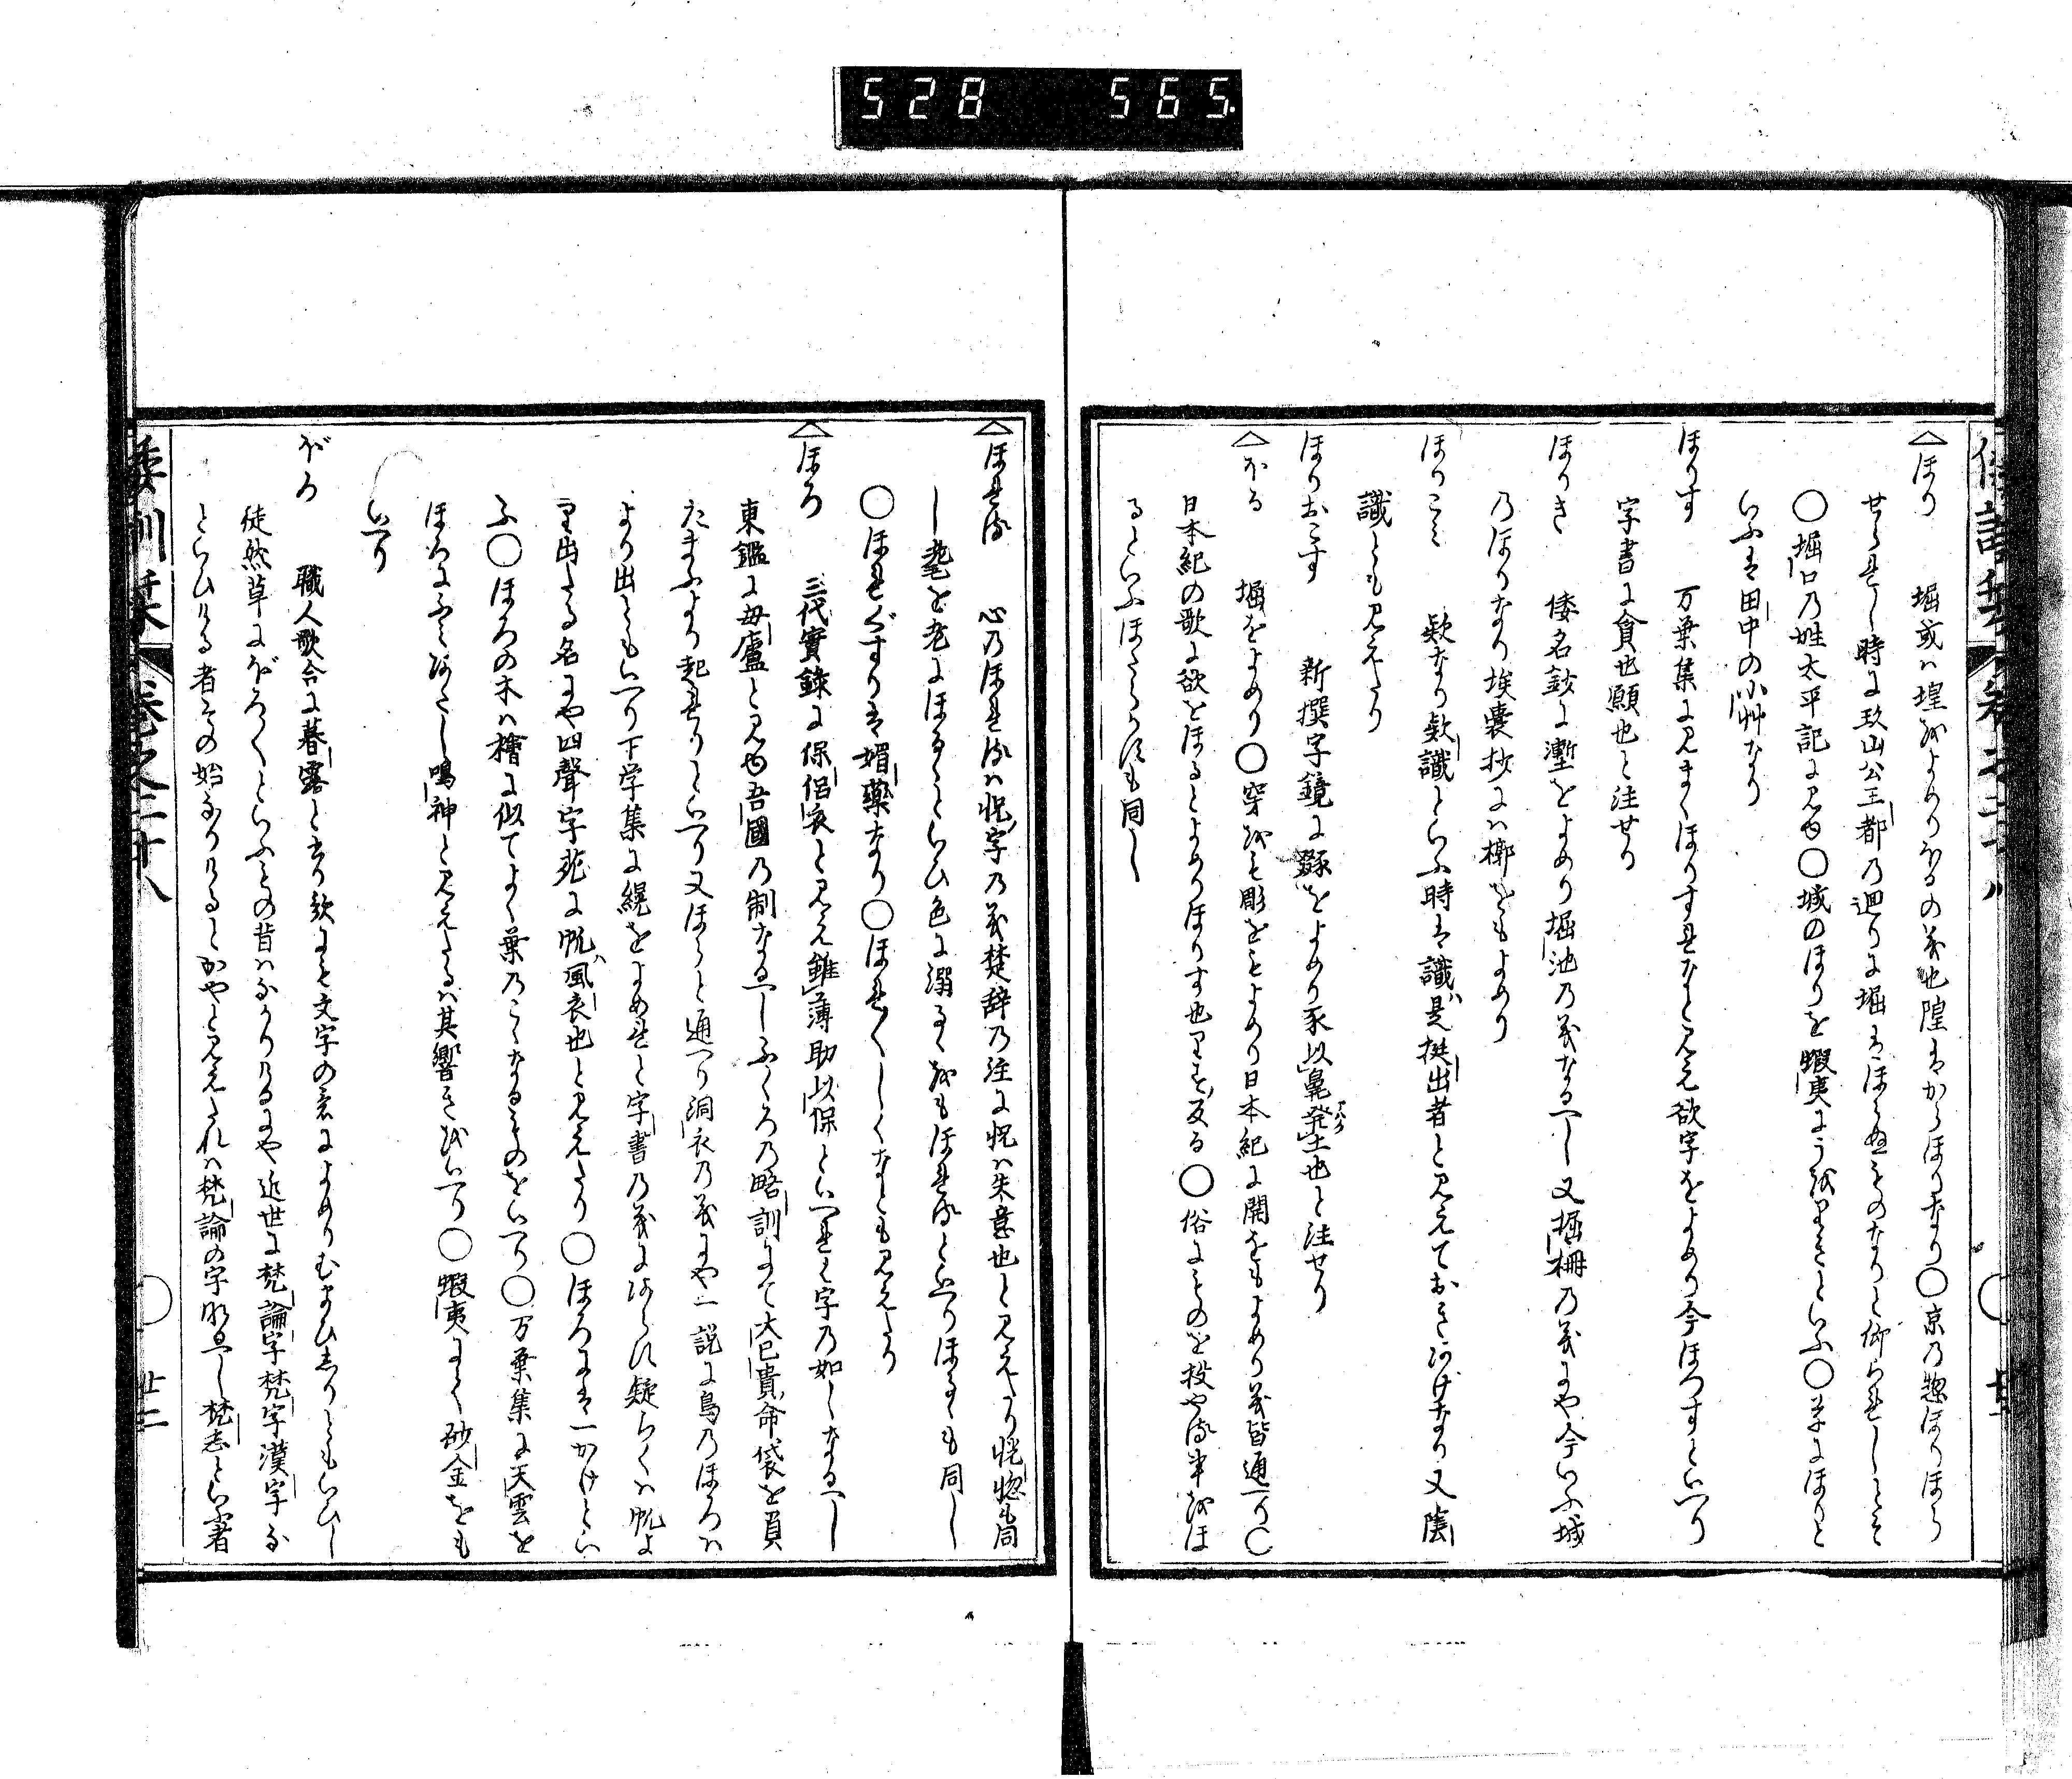 528 565
ほり 堀或ハ堭をよめりほるの義也隍はからほりなり〇京乃惣ほりほら
せられし時に玖山公王都乃廻りに堀はほらぬものなりと仰られしとそ
〇堀口乃姓太平記に見ゆ〇城のほりを蝦夷に
いふは田中の小艸なり
ほりす 万葉集に見まくほりすれなと見え欲字をよめり今ほつすといへり
字書に貪也願也と注せり
ほりき 倭名鈔に塹をよめり堀池乃義なるへし又堀柵乃義にや今いふ城
乃ほりなり埃囊抄にハ椰をもよめり
ほりこミ 欵なり欵識といふ時は識ハ是挺出者と見えておきあげなり又陰
識とも見えたり
ほりおこす 新撰字鏡に豩をよめり豕以鼻発土也と注せり
ほる 堀をよめり〇穿をも彫をもよめり日本紀に開をもよめり義皆通へり〇
日本紀の歌に欲をほるとよめりほりす也りす反る〇俗にものを投やる事をほ
るといふほうるも同し
ほれる 心乃ほれるハ怳字乃義楚辞乃注に怳ハ失意也と見えたり恍惚も同
し耄を老にほるゝといひ色に溺るゝをもほれるといへりほるゝも同し
〇ほれぐすりは媚藥なり〇ほれ〱しくなとも見えたり
ほろ 三代實録に保侶衣と見え雖薄助以保といへれは字乃如しなるへし
東鑑に母廬と見ゆ吾國乃制なるへしふくろ乃略訓にて大己貴命袋を負
たまふより起れりといへり又ほらと通へり洞衣乃義にや一説に鳥乃ほろハ
より出ともいへり下学集に縨をよめれと字書乃義にあらす疑らくハ帆よ
り出たる名にや四聲字苑に帆ハ風衣也と見えたり〇ほろには一かけとい
ふ〇ほろの木ハ檜に似てよく葉乃こくなるものをいへり〇万葉集に天雲を
ほろにふミあたし鳴神と見えたるハ其響きをいへり〇蝦夷にて砂金をも
いへり
ぼろ 職人歌合に暮露と書り歌にも文字の意によめりむまひしりともいひし
徒然草にぼろ〱といふもの昔ハなかりけるにや近世に梵論字梵字漢字な
といひける者その始なりけるとかやと見えたれハ梵論の字なるへし梵志といふ者
倭訓栞 巻之二十八 廿二